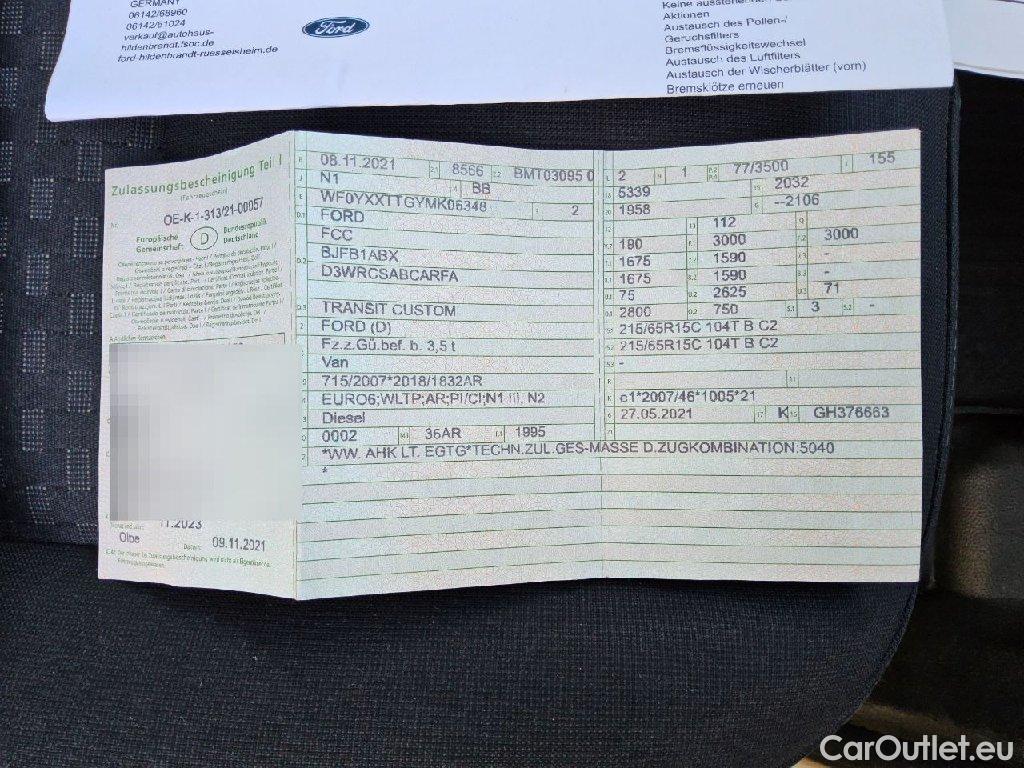 GERMANY
06142/68960
06142/51024
verkauf@autohaus-
hildenbrandt.fsoc.de
ford-hildenbrandt-ruesselsheim.de
Ford
Aktionen
Austausch des Pollen-/
Geruchsfilters
Bremsflüssigkeitswechsel
Austausch des Luftfilters
Austausch der Wischerblätter (vorn)
Bremsklötze erneuern
Zulassungsbescheinigung Teil I
(Fahrzeugschein)
Nr. OE-K-1-313/21-00057
Europäische Gemeinschaft D Bundesrepublik Deutschland
11.2023
Olpe 09.11.2021
08.11.2021 8566 BMT03095 0
N1 BB
WF0YXXTTGYMK06348 2
FORD
FCC
BJFB1ABX
D3WRCSABCARFA
TRANSIT CUSTOM
FORD (D)
Fz.z.Gü.bef. b. 3,5 t
Van
715/2007*2018/1832AR
EURO6;WLTP;AR;PI/CI;N1 III, N2
Diesel
0002 36AR 1995
*WW. AHK LT. EGTG*TECHN.ZUL.GES-MASSE D.ZUGKOMBINATION:5040
*
2 1 77/3500 155
5339 2032
1958 --2106
112
190 3000 3000
1675 1590 -
1675 1590 -
75 2625 71
2800 750 3 -
215/65R15C 104T B C2
215/65R15C 104T B C2
-
e1*2007/46*1005*21
27.05.2021 K GH376663
CarOutlet.eu